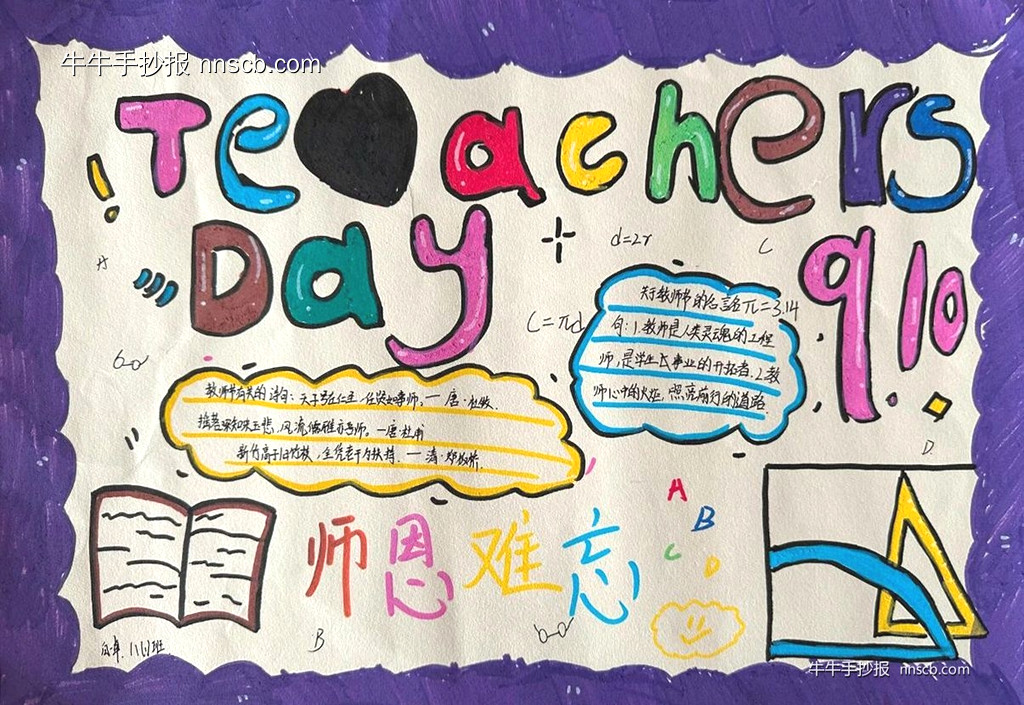 牛牛手抄报 nnscb.com
Te achers
Day
9 10
A
d=2r
C
C=πd
π=3.14
关于教师节的名言名
句:1.教师是人类灵魂的工程
师,是学生长事业的开拓者.2.教
师心中的火炬,照亮前行的道路
D
教师节有关的诗句:
唐·杜牧.
摇落深知宋玉悲,风流儒雅亦吾师。—唐杜甫
新竹高于旧竹枝,全凭老干为扶持.—清·郑板桥.
师恩难忘
A
B
C
D
B
牛牛手抄报 nnscb.com